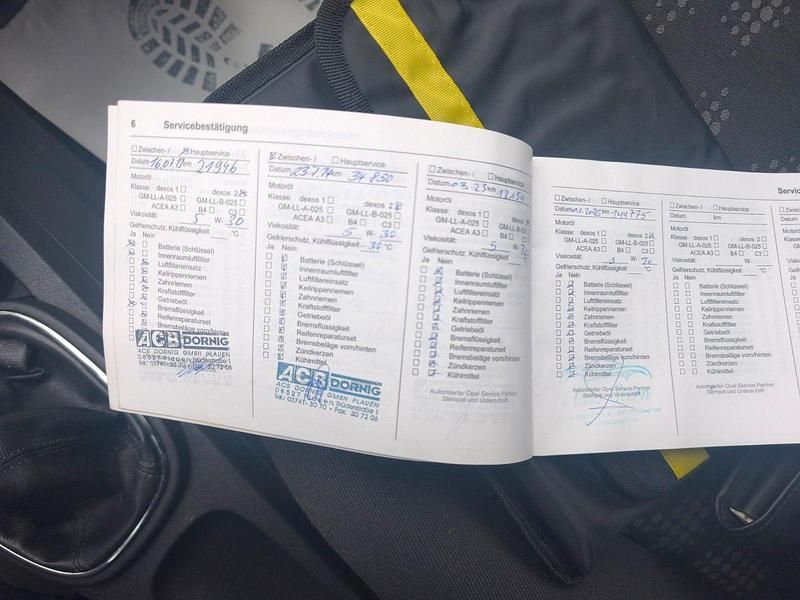 6 Servicebestätigung
☐ Zwischen-/ ☒ Hauptservice
Datum km 21946
Motoröl
Klasse: dexos 1 ☐ dexos 2 ☒
GM-LL-A-025 ☐ GM-LL-B-025 ☐
ACEA A3 ☐ B4 ☐ C3 ☐
Viskosität: 5 W- 30
Gefrierschutz, Kühlflüssigkeit °C
Ja Nein
Batterie (Schlüssel)
Innenraumluftfilter
Luftfiltereinsatz
Keilrippenriemen
Zahnriemen
Kraftstofffilter
Getriebeöl
Bremsflüssigkeit
Reifenreparaturset
Bremsbeläge vorn/hinten
ACB DORNIG
ACB DORNIG GMBH PLAUEN
☒ Zwischen-/ ☐ Hauptservice
Datum km 34 850
Motoröl
Klasse: dexos 1 ☐ dexos 2 ☒
GM-LL-A-025 ☐ GM-LL-B-025 ☐
ACEA A3 ☐ B4 ☐ C3 ☐
Viskosität: 5 W- 30
Gefrierschutz, Kühlflüssigkeit °C
Ja Nein
Batterie (Schlüssel)
Innenraumluftfilter
Luftfiltereinsatz
Keilrippenriemen
Zahnriemen
Kraftstofffilter
Getriebeöl
Bremsflüssigkeit
Reifenreparaturset
Bremsbeläge vorn/hinten
Zündkerzen
Kühlmittel
ACB DORNIG
ACB DORNIG GMBH PLAUEN
08527 Plauen, Brüderstraße 1
Tel.: 03741-30 70 • Fax: 30 72 06
☐ Zwischen-/ ☐ Hauptservice
Datum km
Motoröl
Klasse: dexos 1 ☐ dexos 2
GM-LL-A-025 ☐ GM-LL-B-025 ☐
ACEA A3 ☐ B4 ☐ C3 ☐
Viskosität: 5 W-
Gefrierschutz, Kühlflüssigkeit °C
Ja Nein
Batterie (Schlüssel)
Innenraumluftfilter
Luftfiltereinsatz
Keilrippenriemen
Zahnriemen
Kraftstofffilter
Getriebeöl
Bremsflüssigkeit
Reifenreparaturset
Bremsbeläge vorn/hinten
Zündkerzen
Kühlmittel
Autorisierter Opel Service Partner
Stempel und Unterschrift
☐ Zwischen-/ ☐ Hauptservice
Datum km 144775
Motoröl
Klasse: dexos 1 ☐ dexos 2
GM-LL-A-025 ☐ GM-LL-B-025 ☐
ACEA A3 ☐ B4 ☐ C3 ☐
Viskosität: W-
Gefrierschutz, Kühlflüssigkeit °C
Ja Nein
Batterie (Schlüssel)
Innenraumluftfilter
Luftfiltereinsatz
Keilrippenriemen
Zahnriemen
Kraftstofffilter
Getriebeöl
Bremsflüssigkeit
Reifenreparaturset
Bremsbeläge vorn/hinten
Zündkerzen
Kühlmittel
Autorisierter Opel Service Partner
Stempel und Unterschrift
☐ Zwischen-/ ☐ Hauptservice
Datum km
Motoröl
Klasse: dexos 1 ☐ dexos 2 ☐
GM-LL-A-025 ☐ GM-LL-B-025 ☐
ACEA A3 ☐ B4 ☐ C3 ☐
Viskosität: W-
Gefrierschutz, Kühlflüssigkeit °C
Ja Nein
Batterie (Schlüssel)
Innenraumluftfilter
Luftfiltereinsatz
Keilrippenriemen
Zahnriemen
Kraftstofffilter
Getriebeöl
Bremsflüssigkeit
Reifenreparaturset
Bremsbeläge vorn/hinten
Zündkerzen
Kühlmittel
Autorisierter Opel Service Partner
Stempel und Unterschrift